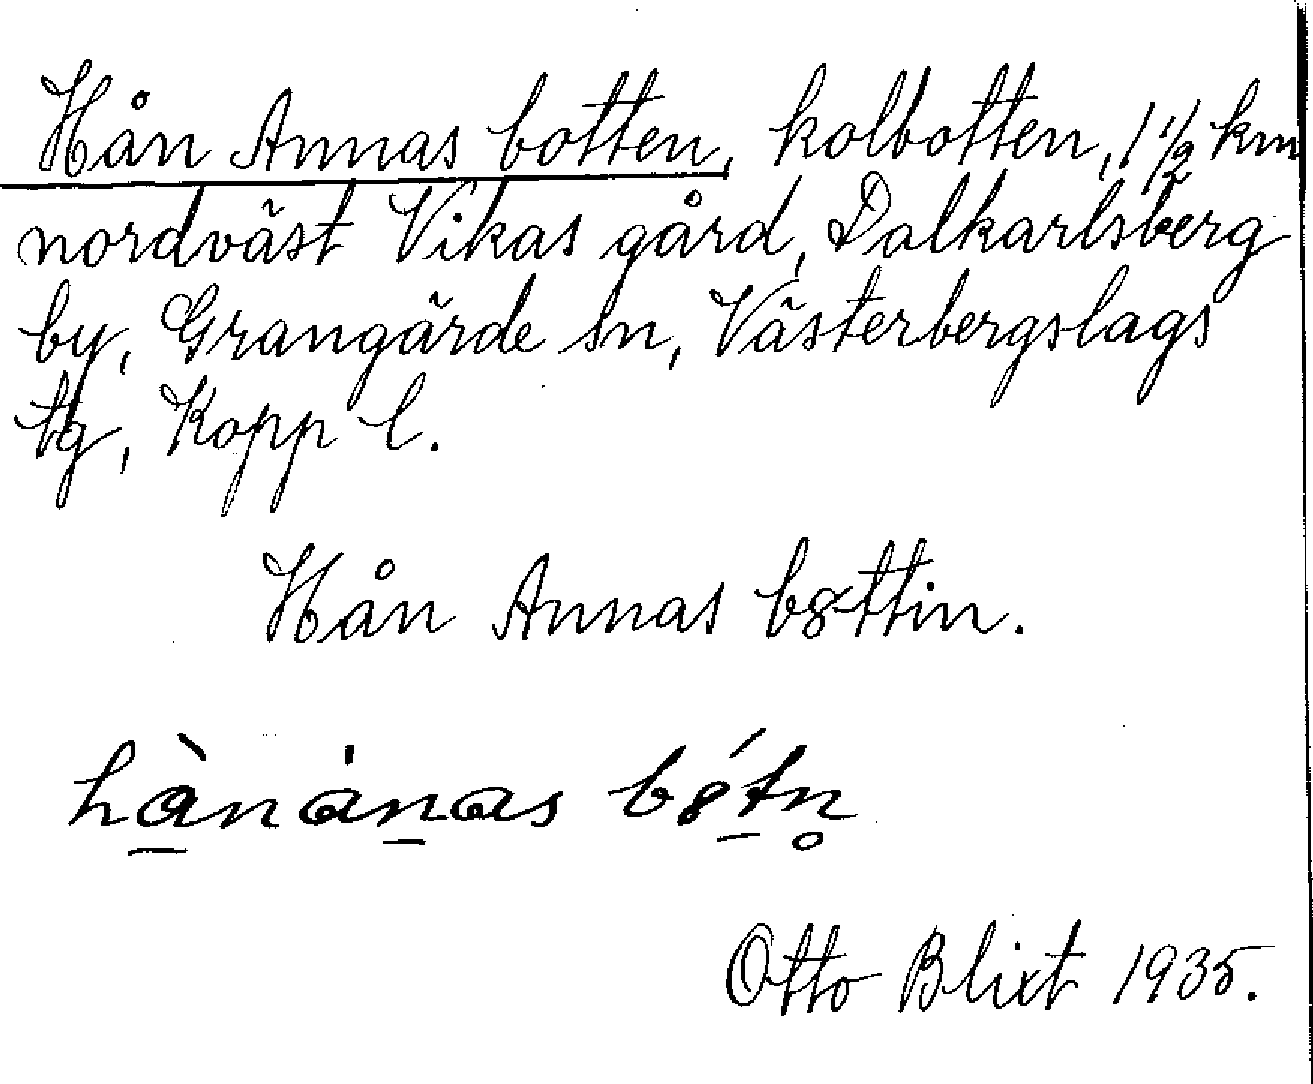 Hån Annas botten, kolbotten, 1 1/2 km
nordväst Vikas gård, Dalkarlsberg
by, Grangärde sn, Västerbergslags
tg, Kopp l.
Hån Annas b8ttin.
Otto Blixt 1935.